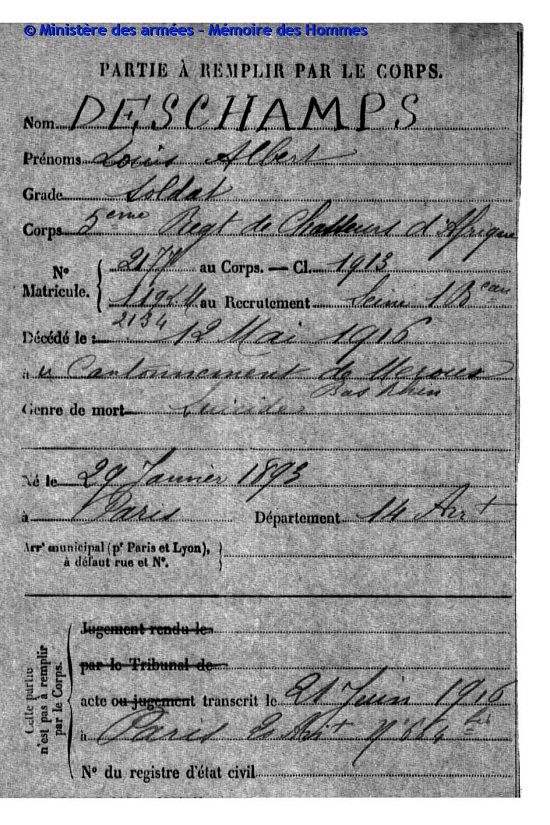 © Ministère des armées - Mémoire des Hommes
PARTIE À REMPLIR PAR LE CORPS.
Nom DESCHAMPS
Prénoms Louis Albert
Grade Soldat
Corps 5ème Regt de Chasseurs d'Afrique
N° Matricule. 2177 au Corps. — Cl. 1913
au Recrutement Seine 1 Beau
2134
Décédé le : 12 Mai 1916
à Cantonnement de
Bas Rhin
Genre de mort Suicide
Né le 29 Janvier 1893
à Paris Département 14 Arrt
Arrt municipal (pr Paris et Lyon),
à défaut rue et N°.
Cette partie
n'est pas à remplir
par le Corps.
Jugement rendu le
par le Tribunal de
acte ou jugement transcrit le 21 Juin 1916
à Paris
N° du registre d'état civil